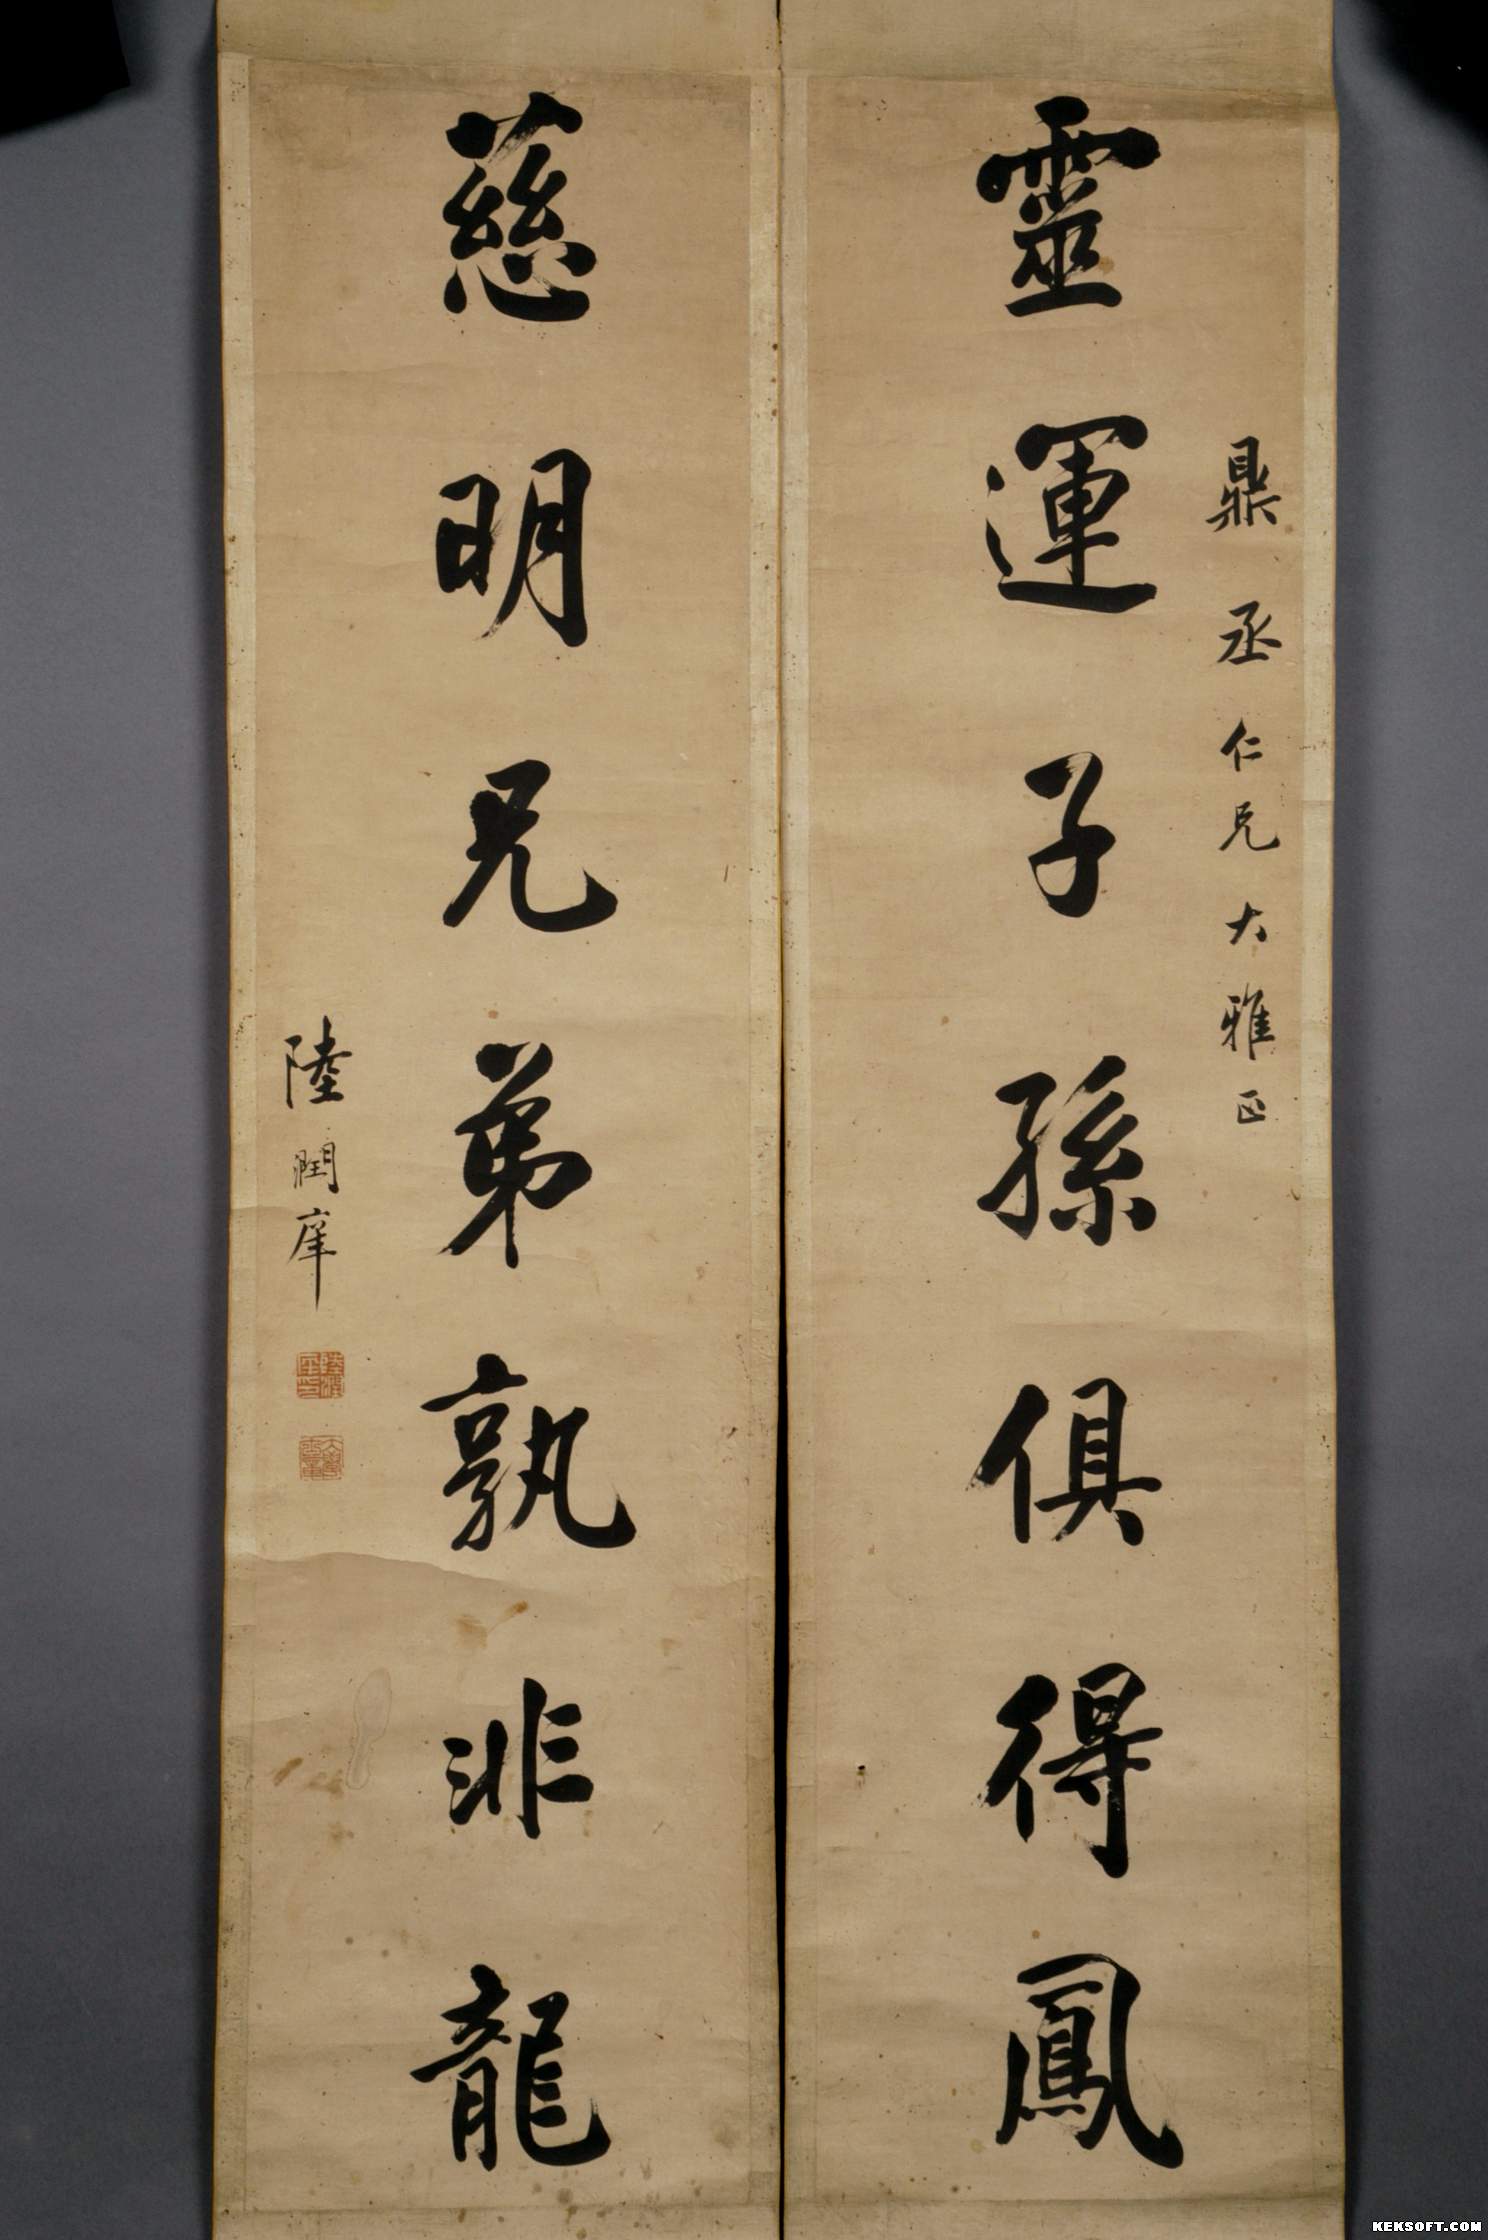 鼎丞仁兄大雅正
靈運子孫俱得鳳
慈明兄弟孰非龍
陸潤庠
KEKSOFT.COM